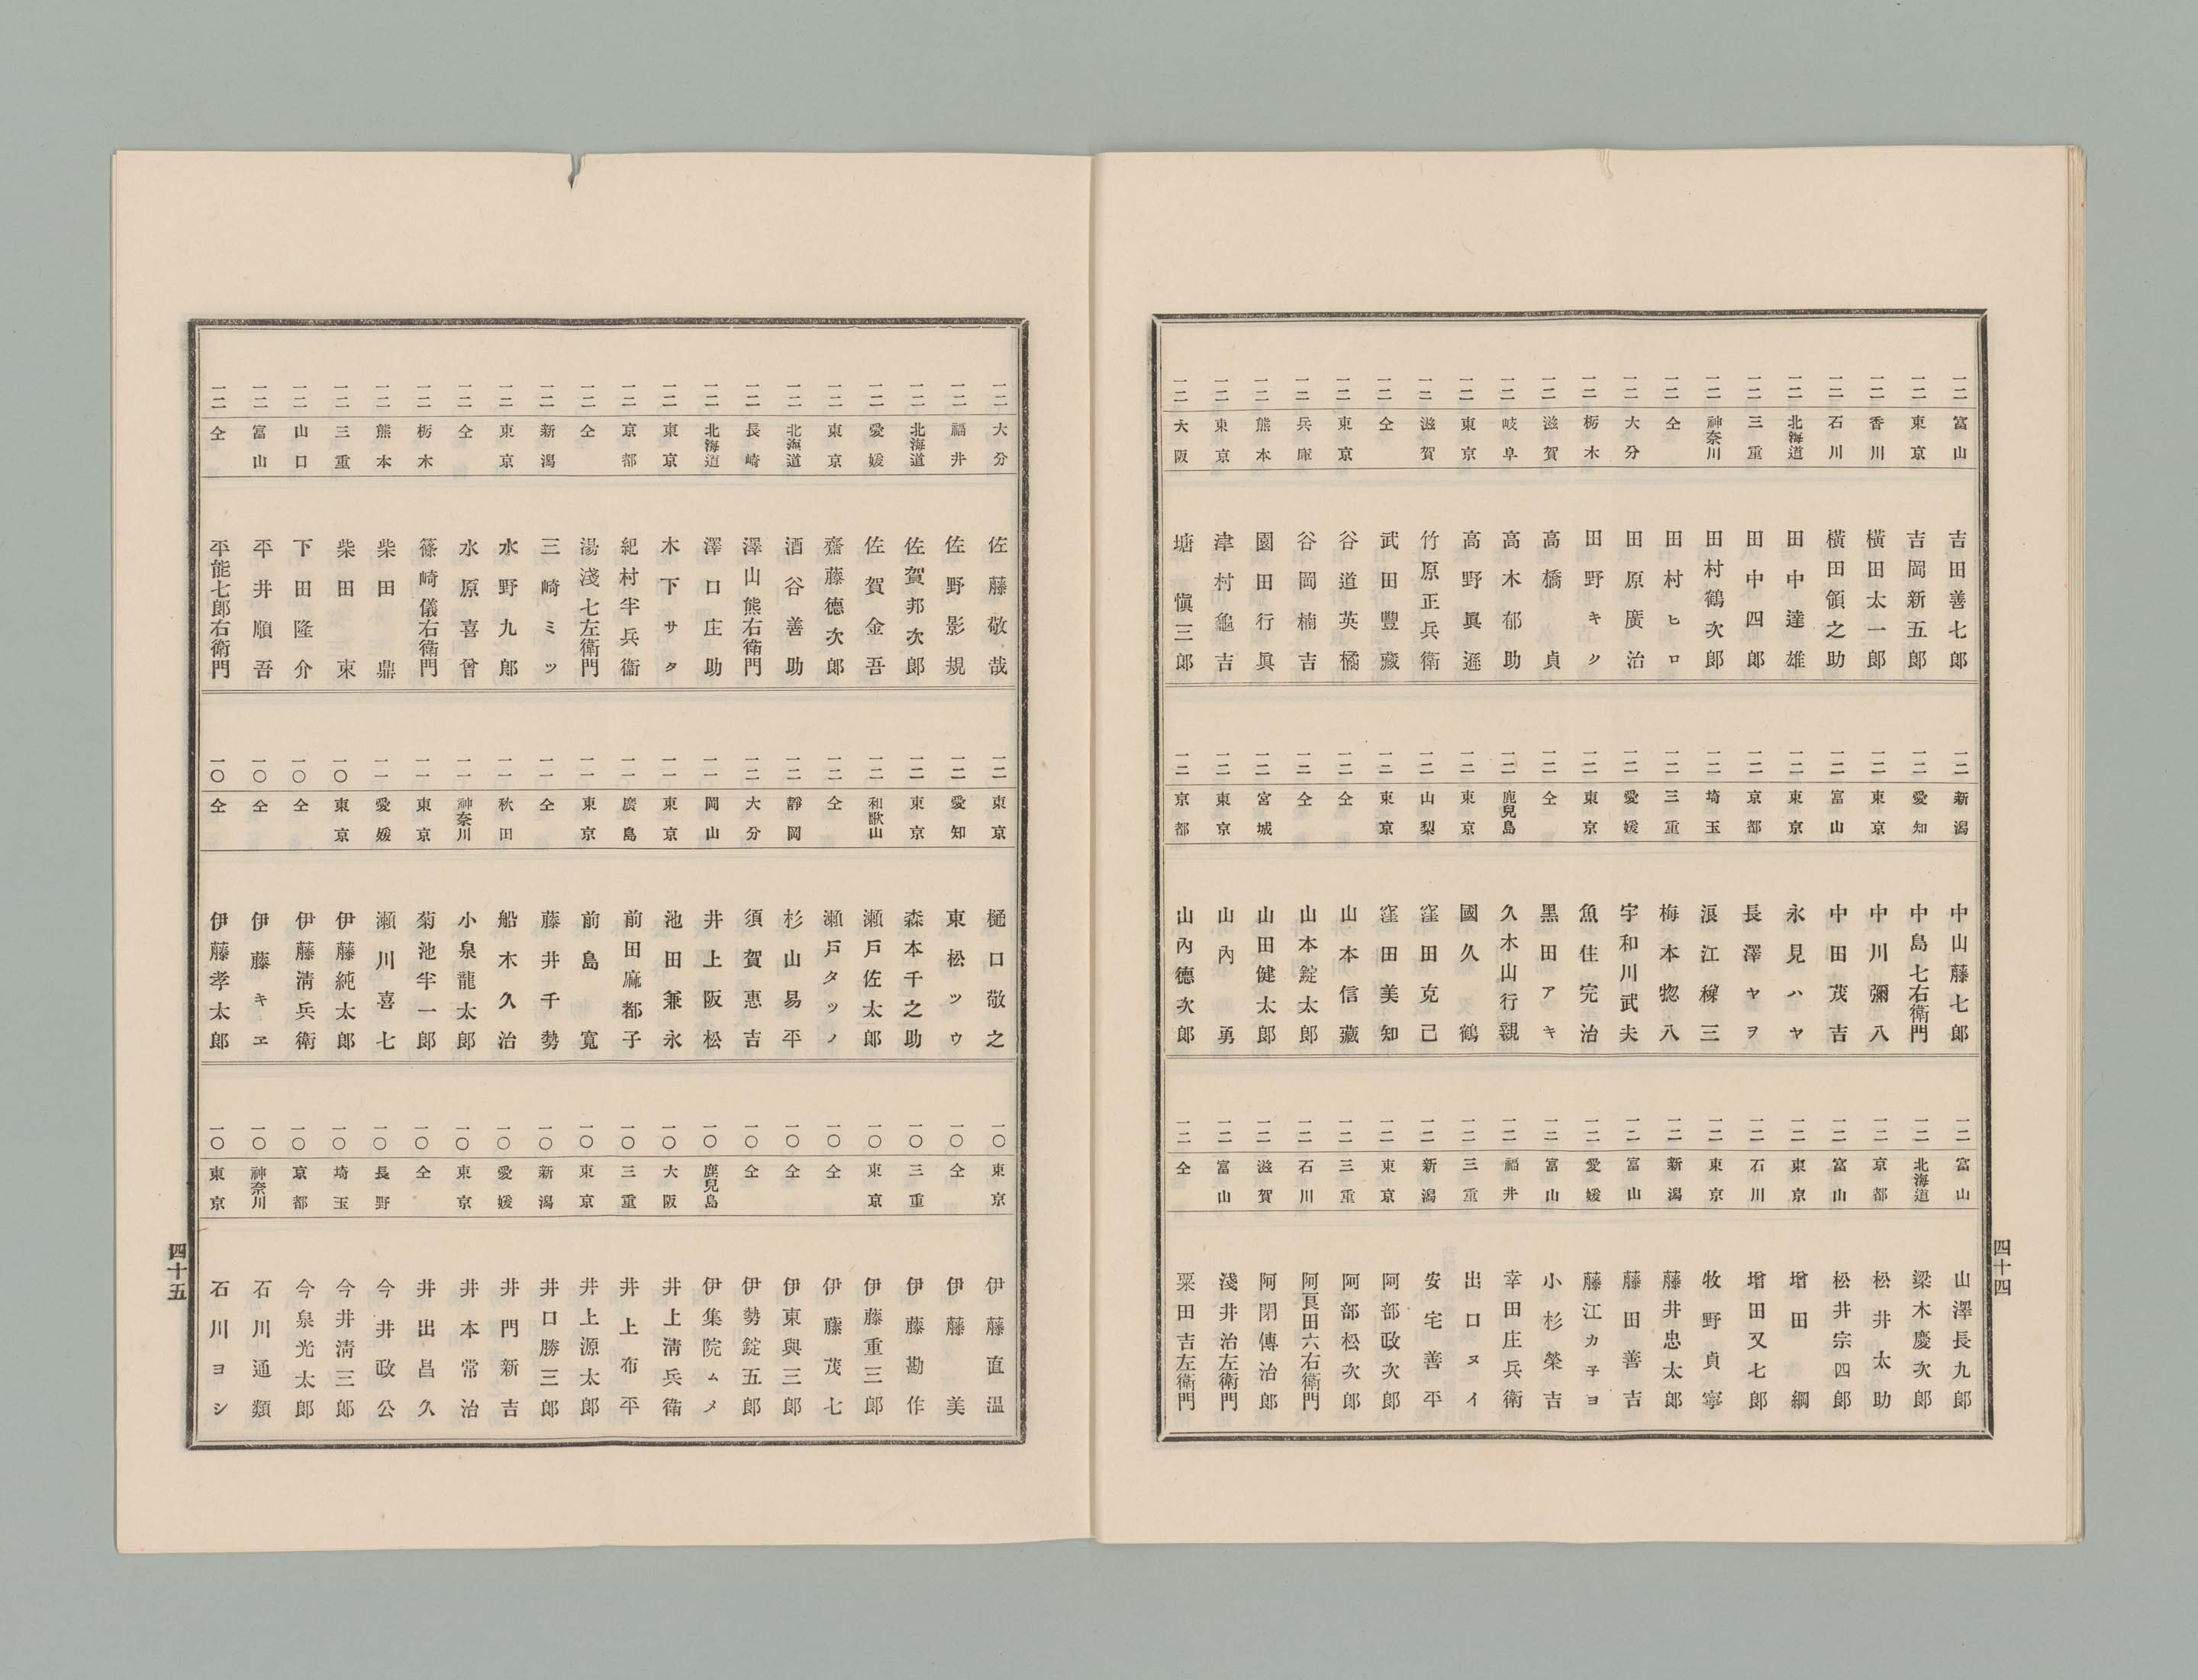 四十四
一二 富山 吉田善七郎
一二 東京 吉岡新五郎
一二 香川 橫田太一郎
一二 石川 橫田領之助
一二 北海道 田中達雄
一二 三重 田中四郎
一二 神奈川 田村鶴次郎
一二 仝 田村ヒロ
一二 大分 田原廣治
一二 栃木 田野キク
一二 滋賀 高橋貞
一二 岐阜 高木郁助
一二 東京 高野眞遜
一二 滋賀 竹原正兵衛
一二 仝 武田豐藏
一二 東京 谷道英橘
一二 兵庫 谷岡楠吉
一二 熊本 園田行眞
一二 東京 津村龜吉
一二 大阪 塘愼三郎
一二 新潟 中山藤七郎
一二 愛知 中島七右衛門
一二 東京 中川彌八
一二 富山 中田茂吉
一二 東京 永見ハヤ
一二 京都 長澤ヤヲ
一二 埼玉 浪江稼三
一二 三重 梅本惣八
一二 愛媛 宇和川武夫
一二 東京 魚住完治
一二 仝 黑田アキ
一二 鹿兒島 久木山行親
一二 東京 國久鶴
一二 山梨 窪田克己
一二 東京 窪田美知
一二 仝 山本信藏
一二 仝 山本錠太郎
一二 宮城 山田健太郎
一二 東京 山內勇
一二 京都 山內德次郎
一二 富山 山澤長九郎
一二 北海道 梁木慶次郎
一二 京都 松井太助
一二 富山 松井宗四郎
一二 東京 增田綱
一二 石川 增田又七郎
一二 東京 牧野貞寧
一二 新潟 藤井忠太郎
一二 富山 藤田善吉
一二 愛媛 藤江カ子ヨ
一二 富山 小杉榮吉
一二 福井 幸田庄兵衛
一二 三重 出口ヌイ
一二 新潟 安宅善平
一二 東京 阿部政次郎
一二 三重 阿部松次郎
一二 石川 阿良田六右衛門
一二 滋賀 阿閉傳治郎
一二 富山 淺井治左衛門
一二 仝 粟田吉左衛門
一二 大分 佐藤敬哉
一二 福井 佐野影規
一二 北海道 佐賀邦次郎
一二 愛媛 佐賀金吾
一二 東京 齋藤德次郎
一二 北海道 酒谷善助
一二 長崎 澤山熊右衛門
一二 北海道 澤口庄助
一二 東京 木下サタ
一二 京都 紀村半兵衞
一二 仝 湯淺七左衛門
一二 新潟 三崎ミツ
一二 東京 水野九郎
一二 仝 水原喜曾
一二 栃木 篠崎儀右衛門
一二 熊本 柴田鼎
一二 三重 柴田東
一二 山口 下田隆介
一二 富山 平井順吾
一二 仝 平能七郎右衛門
一二 東京 樋口敬之
一二 愛知 東松ツウ
一二 東京 森本千之助
一二 和歌山 瀨戶佐太郎
一二 仝 瀨戶タツノ
一二 靜岡 杉山易平
一二 大分 須賀惠吉
一一 岡山 井上阪松
一一 東京 池田兼永
一一 廣島 前田麻都子
一一 東京 前島寛
一一 仝 藤井千勢
一一 秋田 船木久治
一一 神奈川 小泉龍太郎
一一 東京 菊池半一郎
一一 愛媛 瀨川喜七
一〇 東京 伊藤純太郎
一〇 仝 伊藤淸兵衛
一〇 仝 伊藤キヱ
一〇 仝 伊藤孝太郎
一〇 東京 伊藤直温
一〇 仝 伊藤美
一〇 三重 伊藤勘作
一〇 東京 伊藤重三郎
一〇 仝 伊藤茂七
一〇 仝 伊東與三郎
一〇 仝 伊勢錠五郎
一〇 鹿兒島 伊集院ムメ
一〇 大阪 井上淸兵衛
一〇 三重 井上布平
一〇 東京 井上源太郎
一〇 新潟 井口勝三郎
一〇 愛媛 井門新吉
一〇 東京 井本常治
一〇 仝 井出昌久
一〇 長野 今井政公
一〇 埼玉 今井淸三郎
一〇 京都 今泉光太郎
一〇 神奈川 石川通類
一〇 東京 石川ヨシ
四十五